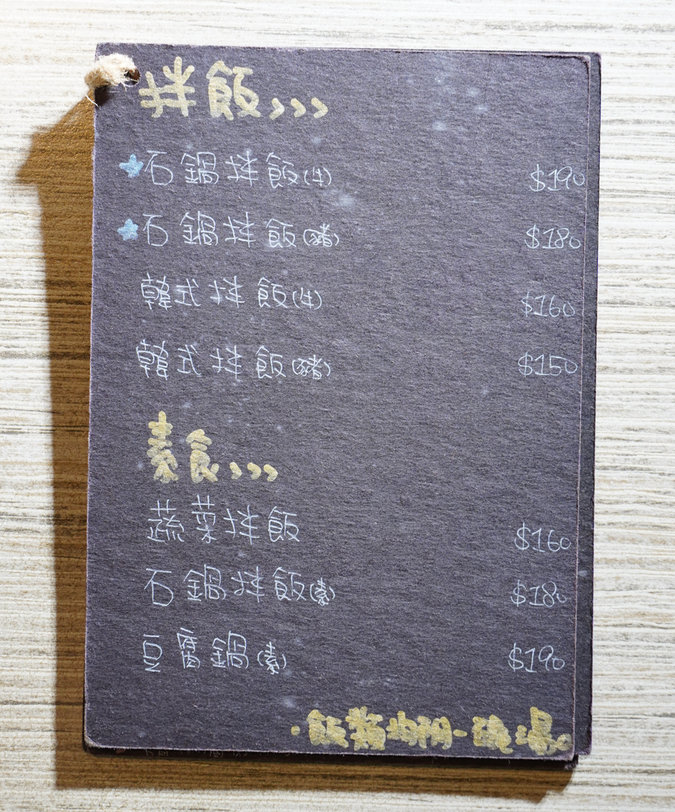 拌飯>>>
★石鍋拌飯(牛) $190
★石鍋拌飯(豬) $180
韓式拌飯(牛) $160
韓式拌飯(豬) $150
素食>>>
蔬菜拌飯 $160
石鍋拌飯(素) $180
豆腐鍋(素) $190
·飯類均附一碗湯。